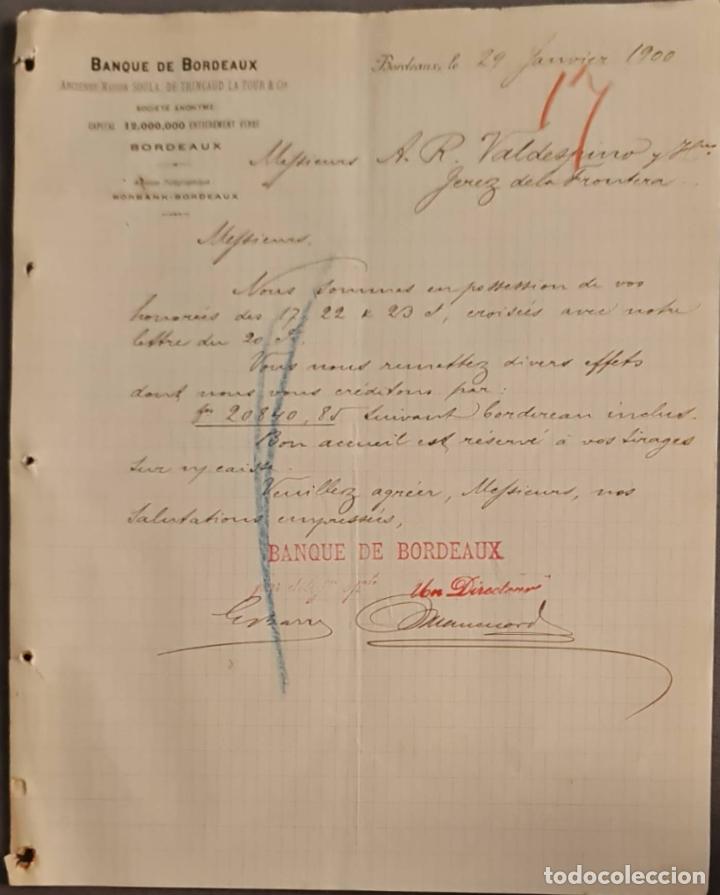 BANQUE DE BORDEAUX
ANCIENNE MAISON SOULA, DE TRINCAUD LA TOUR & Cie
SOCIÉTÉ ANONYME
CAPITAL 12,000,000 ENTIÈREMENT VERSÉ
BORDEAUX
Adresse Télégraphique
BORBANK-BORDEAUX
Bordeaux, le 29 Janvier 1900
17
Messieurs A. R. Valdespino y Hno
Jerez de la Frontera
Messieurs,
Nous sommes en possession de vos
honorées des 17, 22 & 23 ct, croisées avec notre
lettre du 20 ct.
Vous nous remettez divers effets
dont nous vous créditons par:
frs 20840,85 suivant bordereau inclus.
Bon accueil est réservé à vos tirages
sur n/ caisse.
Veuillez agréer, Messieurs, nos
salutations empressées,
BANQUE DE BORDEAUX
Un Directeur
todocoleccion